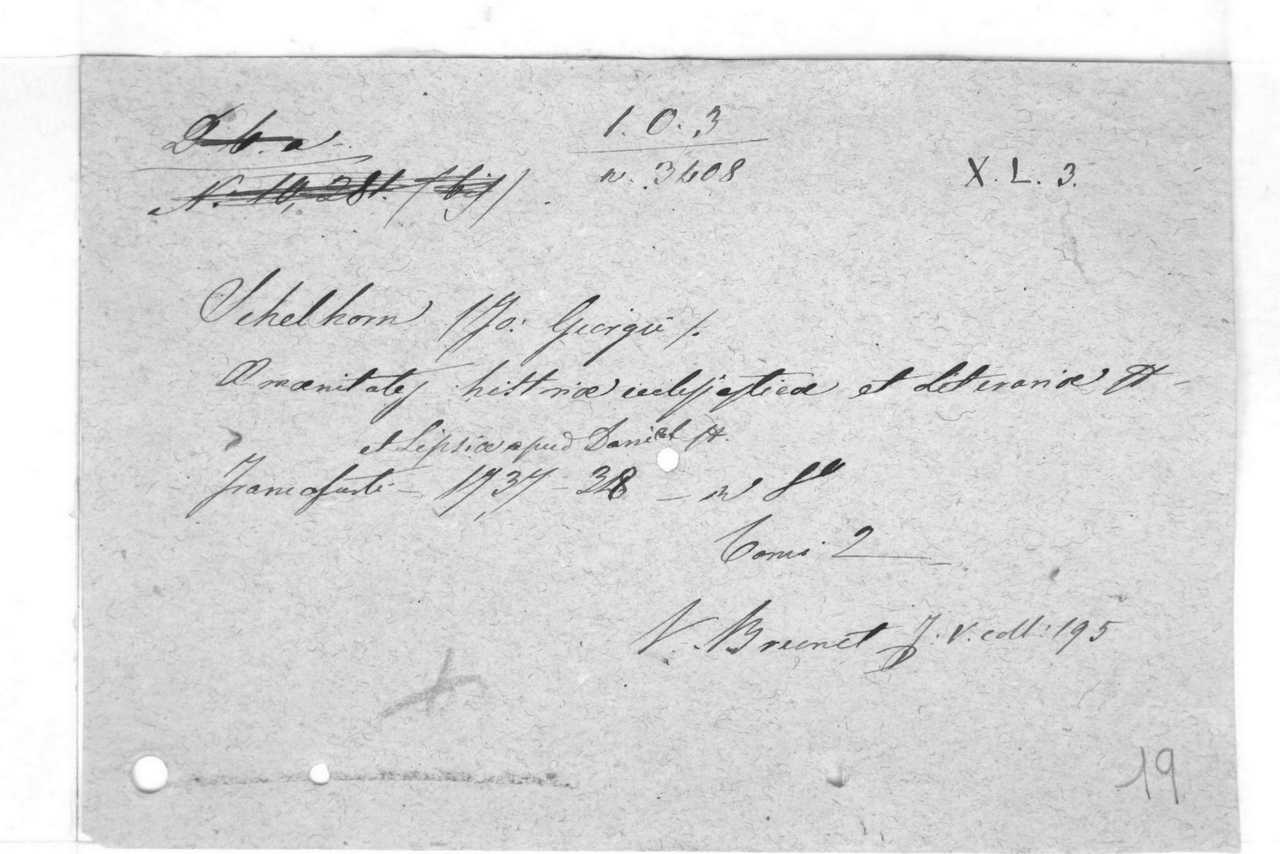 D. b. a
1. O. 3
N. 10,281. (bj)
n. 3608
X. L. 3.
Schelhorn (Jo: Georgii).
Amænitates histriæ eclesjasticæ et Literariæ
et Lipsiæ apud Daniel
Francofurti – 1737 – 38 – in 8º
Tomi 2
V. Brunet T. V. coll: 195
19